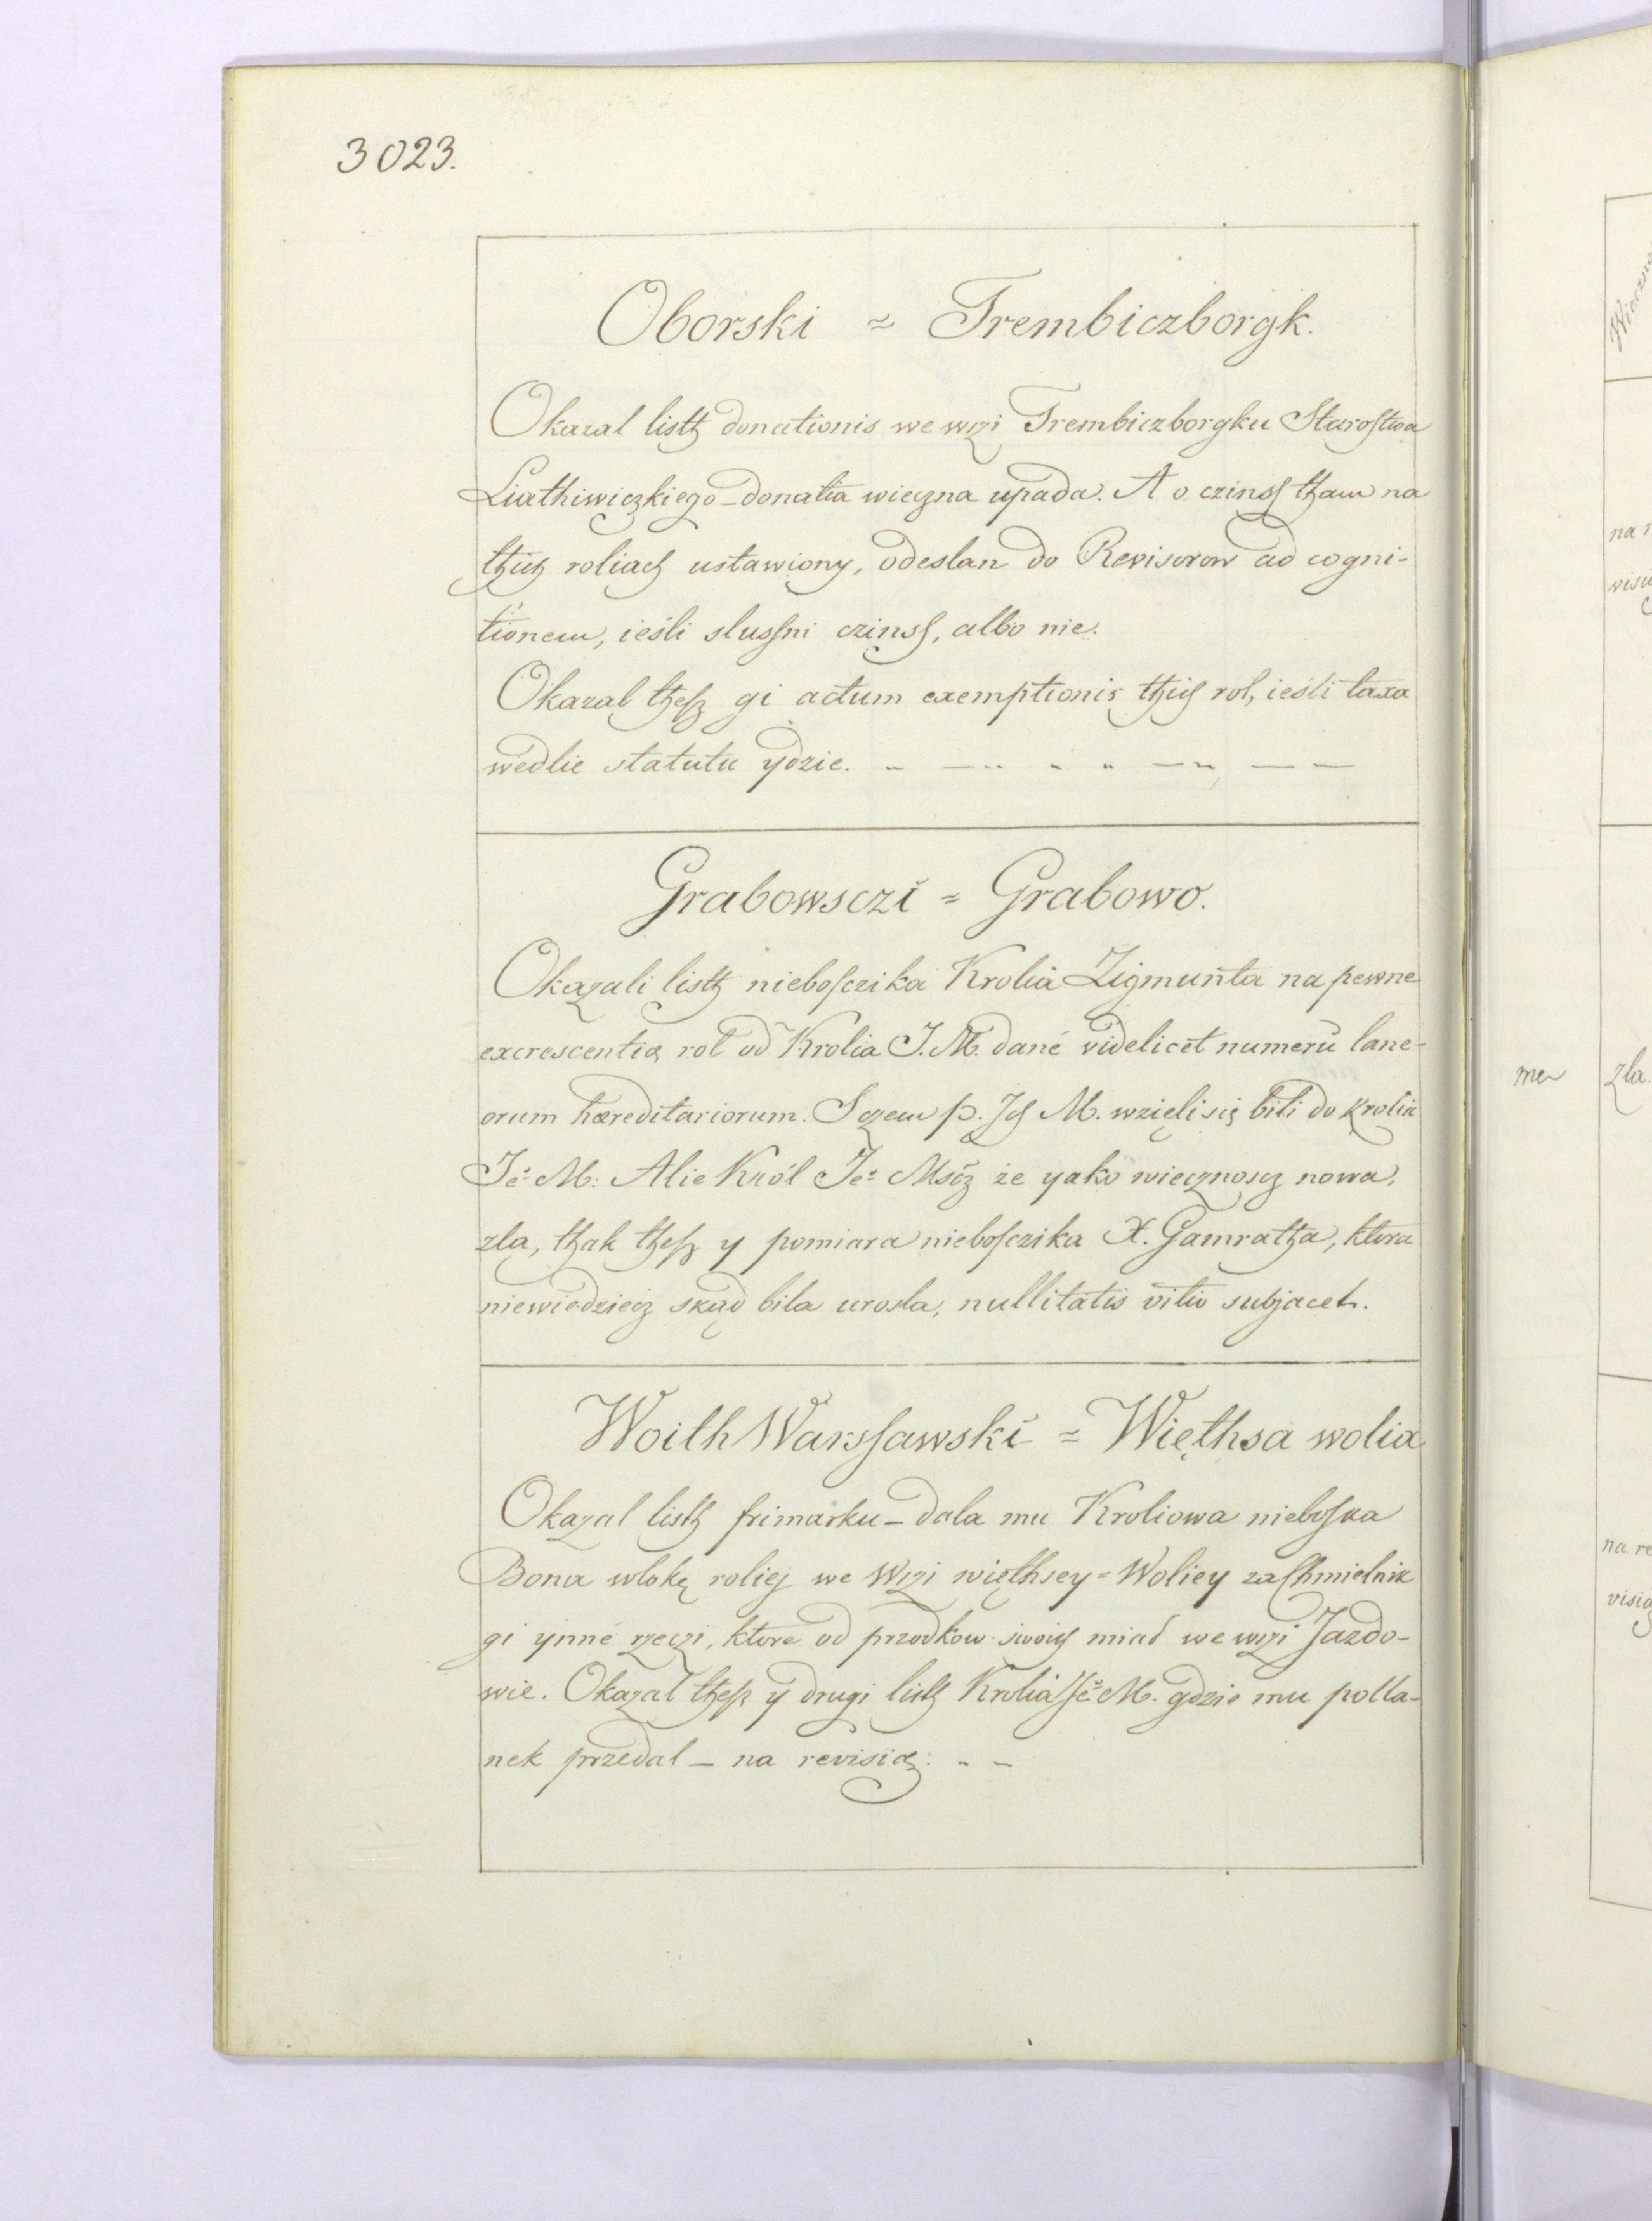 3023.
Oborski = Trembiczborgk.
Okazal listh donationis we wzi Trembiczborgku Starostwa
Liathiwiczkiego – donatia wieczna upada. A o czinss tham na
thich roliach ustawiony, odeslan do Revisorow ad cogni-
tionem, ieśli slussni czinss, albo nie.
Okazal thesz gi actum exemptionis thich rol, ieśli taxa
wedlie statutu ydzie.
Grabowsczi = Grabowo.
Okazali listh niebosczika Krolia Zigmunta na pewne
excrescentią rol od Krolia J. M. dané videlicet numerū lane-
orum hæreditariorum. S czem p. Jch M. wzięli się bili do Krolia
Je° M: Alie Król Je° Mścz że yako wiecznoscz nowa,
zla, thak thesz y pomiara niebosczika X. Gamratha, ktora
niewiedziecz skąd bila urosla, nullitatis vitio subjacet.
Woith Warssawski = Więthsa wolia
Okazal listh frimarku – dala mu Kroliowa nieboska
Bona wlokę roliej we Wzi więthsey = Woliey za Chmielnik
gi ynné rzeczi, ktore od przodkow swoich miał we wzi Jazdo-
wie. Okazal thesz y drugi listh Krolia Je° M. gdzie mu polla-
nek przedal – na revisią.
na
me
zla
na re
visią